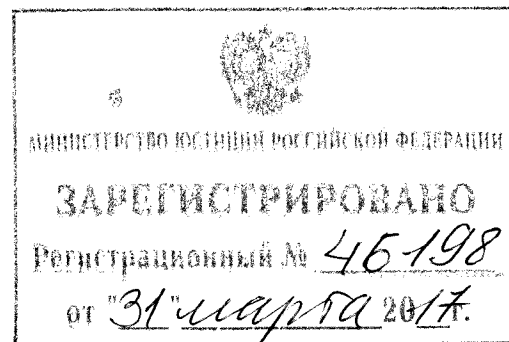 МИНИСТЕРСТВО ЮСТИЦИИ РОССИЙСКОЙ ФЕДЕРАЦИИ
ЗАРЕГИСТРИРОВАНО
Регистрационный № 46198
от "31" марта 2017г.